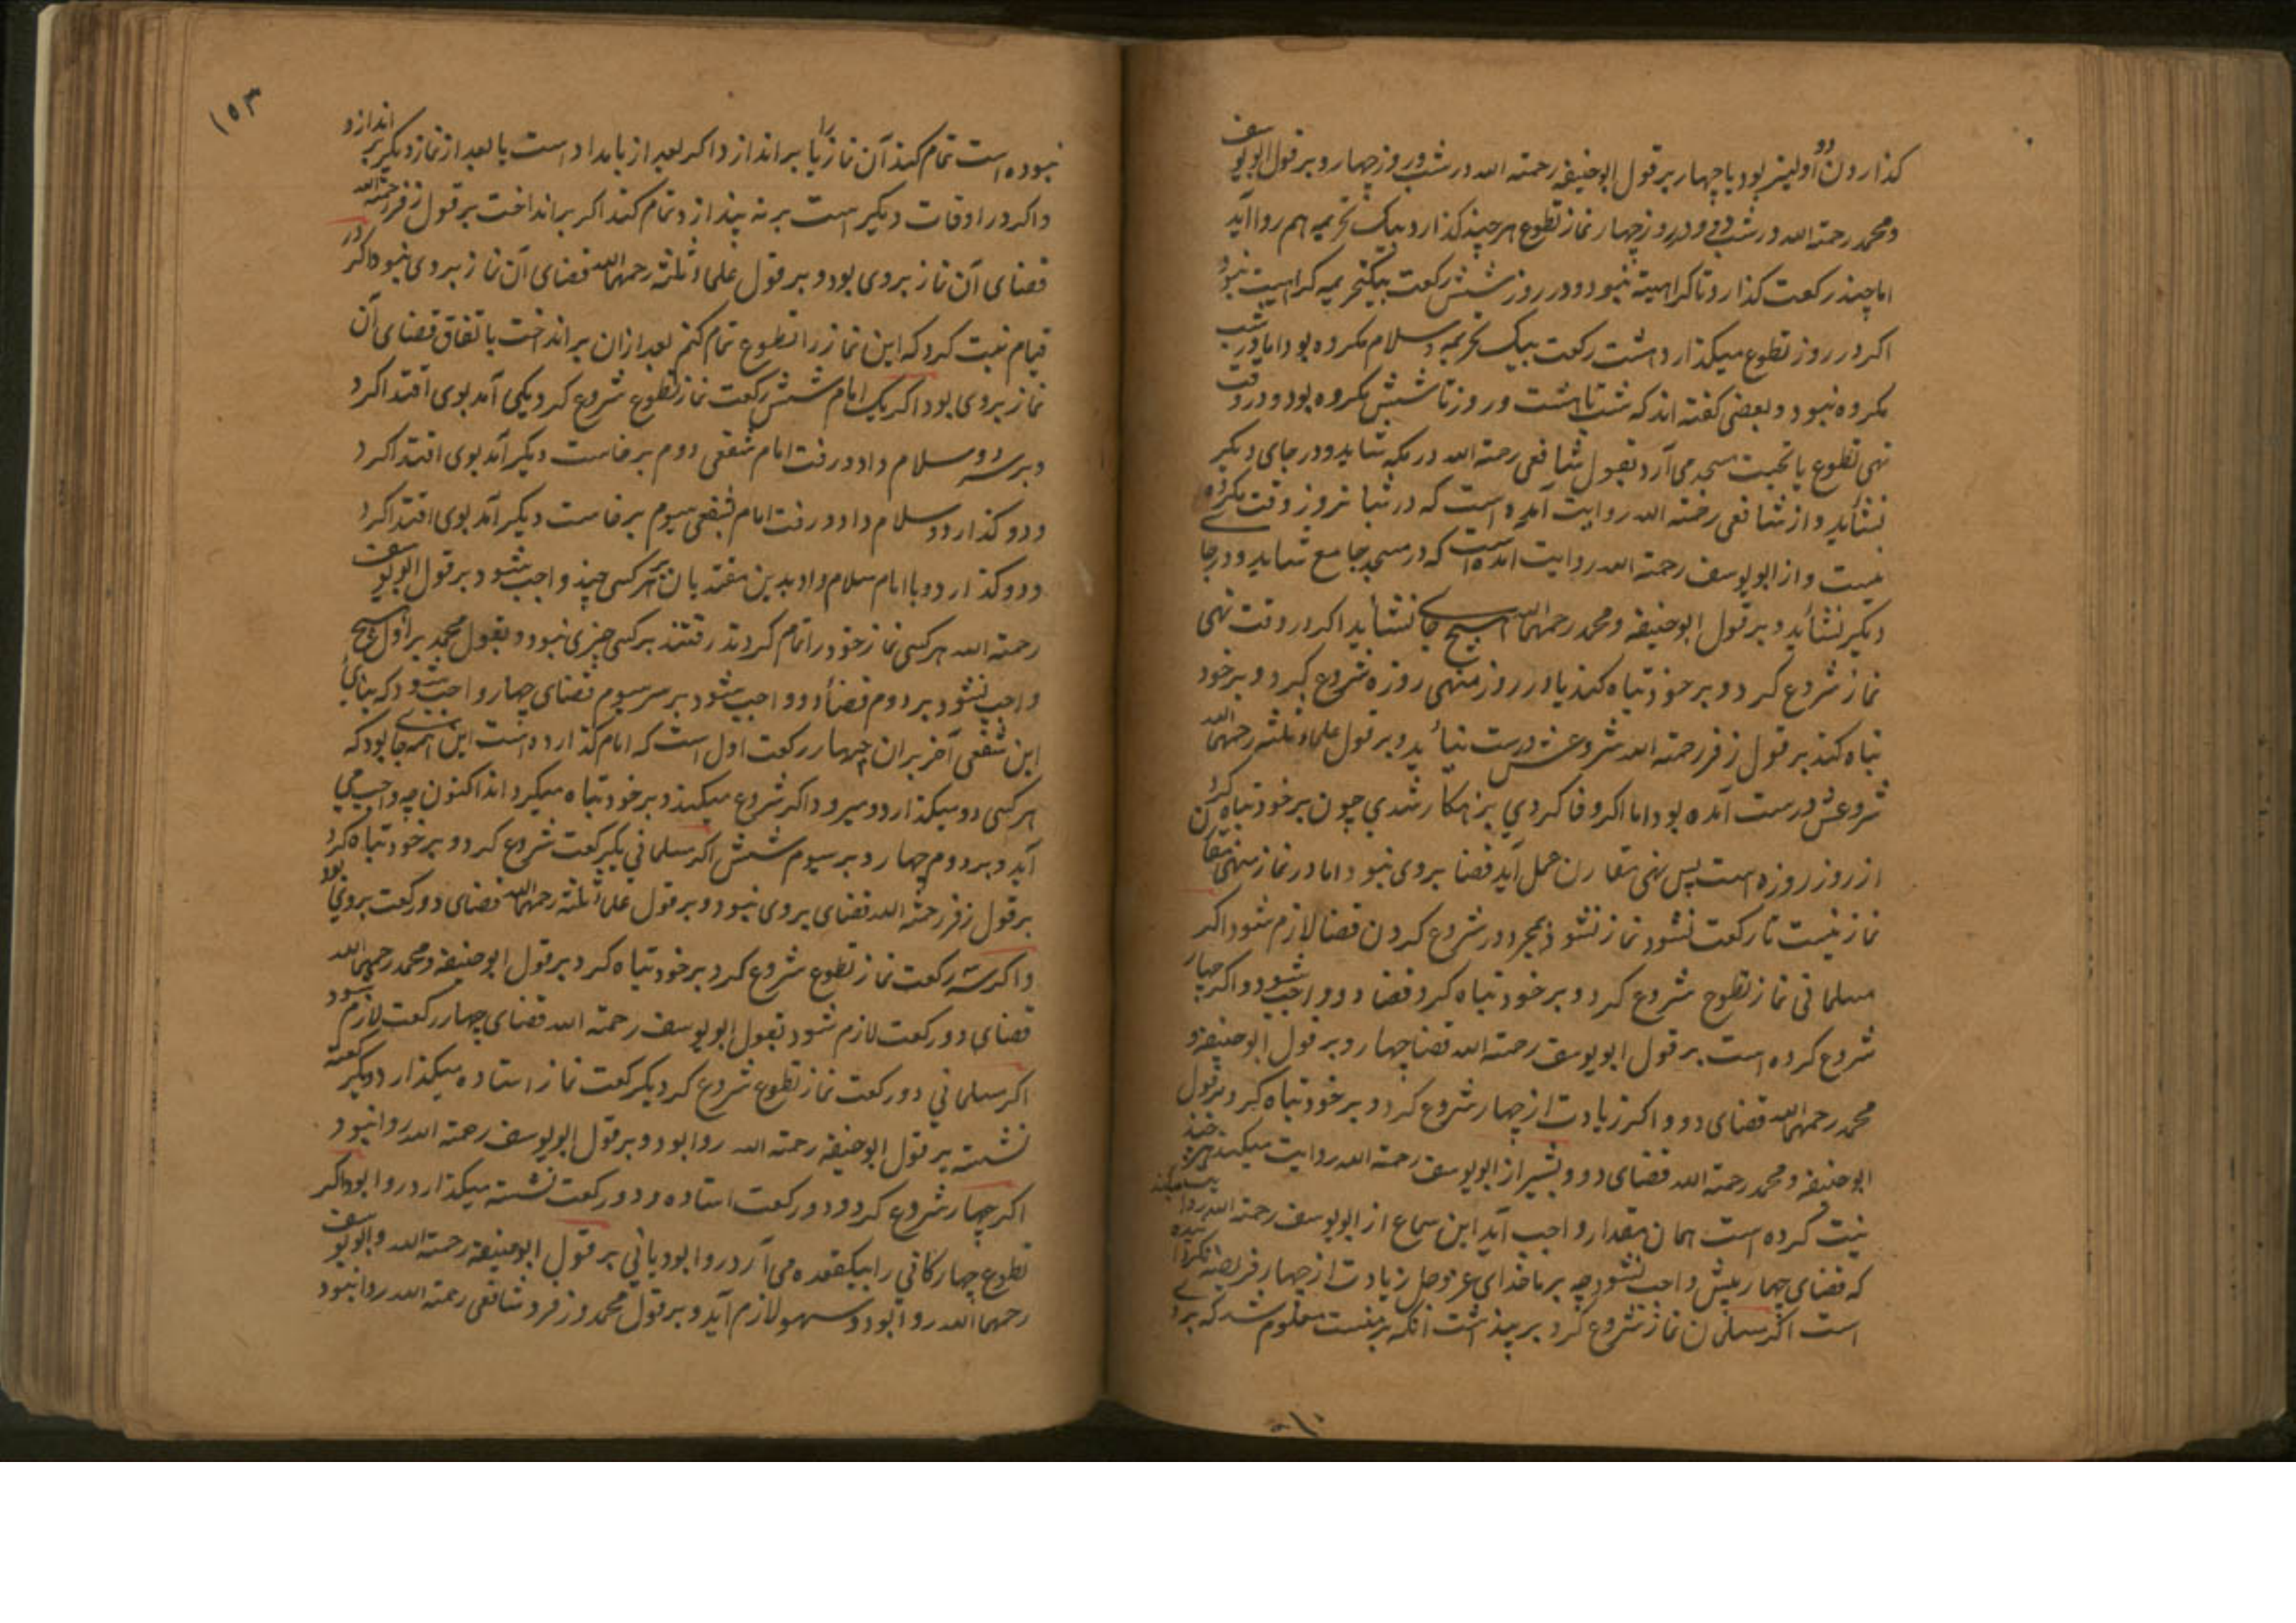 کذاردن دو اولیتر بود یا چهار بر قول ابوحنیفه رحمته الله در شب و روز چهار و بر قول ابویوسف
و محمد رحمته الله در شب دو و در روز چهار نماز تطوع هر چند کذارد بیک تحریمه هم روا آید
اما چند رکعت کذارد تا کراهیته نبود و در روز شش رکعت بیک تحریمه کراهیت نبود
اکر در روز تطوع میکذارد هشت رکعت بیک تحریمه و سلام مکروه بود اما در شب
مکروه نبود و بعضی کفته اند که شب تا هشت و روز تا شش مکروه بود و در وقت
نهی تطوع یا تحیت مسجد می آرد بقول شافعی رحمته الله در مکه شاید و در جای دیکر
نشاید و از شافعی رحمته الله روایت آمده است که در شبانروز وقت مکروه
نیست و از ابویوسف رحمته الله روایت آمده است که در مسجد جامع شاید و در جا
دیکر نشاید و بر قول ابوحنیفه و محمد رحمهما الله هیچ جای نشاید اکر در وقت نهی
نماز شروع کرد و بر خود تباه کند یا در روز منهی روزه شروع کرد و بر خود
تباه کند بر قول زفر رحمته الله شروعش درست نیاید و بر قول علماء ثلثه رحمهم الله
شروعش درست آمده بود اما اکر وفا کردی بزهکار شدی چون بر خود تباه کرد
از روز روزه است پس نهی مقارن عمل آید قضا بروی نبود اما در نماز منهی مقارن
نماز نیست تا رکعت نشود نماز نشود بمجرد در شروع کردن قضا لازم شود اکر
مسلمانی نماز تطوع شروع کرد و بر خود تباه کرد قضا دو واجب شود و اکر چهار
شروع کرده است بر قول ابویوسف رحمته الله قضا چهار و بر قول ابوحنیفه و
محمد رحمهما الله قضای دو و اکر زیادت از چهار شروع کرد و بر خود تباه کرد بر قول
ابوحنیفه و محمد رحمته الله قضای دو و بشیر از ابویوسف رحمته الله روایت میکند هر چند
نیت کرده است همان مقدار واجب آید ابن سماع از ابویوسف رحمته الله روایت میکند
که قضای چهار بیش واجب نشود چه بر ما خدای عز و جل زیادت از چهار فریضه نکرده
است اکر مسلمان نماز شروع کرد بر پنداشت آنکه بر منست معلوم شد که بروی
۱۵۳
نبوده است تمام کند آن نماز را یا براندازد اکر بعد از بامداد است یا بعد از نماز دیکر براندازد
و اکر در اوقات دیکر است بر نه پندازد و تمام کند اکر برانداخت بر قول زفر رحمته الله
قضای آن نماز بروی بود و بر قول علماء ثلثه رحمهم الله قضای آن نماز بروی نبود و اکر در
قیام نیت کرد که این نماز را تطوع تمام کنم بعد ازان برانداخت باتفاق قضای آن
نماز بروی بود اکر یک امام شش رکعت نماز تطوع شروع کرد یکی آمد بوی اقتدا کرد
و بر سر دو سلام داد و رفت امام شفعی دوم برخاست دیکر آمد بوی اقتدا کرد
و دو کذارد و سلام داد و رفت امام شفعی سیوم برخاست دیکر آمد بوی اقتدا کرد
و دو کذارد و با امام سلام داد بدین مقتدیان بر هر کسی چند واجب شود بر قول ابویوسف
رحمته الله هر کسی نماز خود را تمام کردند رفتند بر کسی چیزی نبود و بقول محمد بر اول هیچ
واجب نشود بر دوم قضا دو واجب شود بر سر سیوم قضای چهار واجب شود که بنای
این شفعی آخر بران چهار رکعت اول است که امام کذارده است این همه جای بود که
هر کسی دو میکذارد و میرود اکر شروع میکند و بر خود تباه میکرداند اکنون چه واجب می
آید و بر دوم چهار و بر سیوم شش اکر مسلمانی یکرکعت شروع کرد و بر خود تباه کرد
بر قول زفر رحمته الله قضای بروی نبود و بر قول علماء ثلثه رحمهم الله قضای دو رکعت بروی بود
و اکر سه رکعت نماز تطوع شروع کرد بر خود تباه کرد بر قول ابوحنیفه و محمد رحمهما الله
قضای دو رکعت لازم شود بقول ابویوسف رحمته الله قضای چهار رکعت لازم شود
اکر مسلمانی دو رکعت نماز تطوع شروع کرد یکرکعت نماز استاده میکذارد دیکر رکعته
نشسته بر قول ابوحنیفه رحمته الله روا بود و بر قول ابویوسف رحمته الله روا نبود
اکر چهار شروع کرد و دو رکعت استاده و دو رکعت نشسته میکذارد روا بود اکر
تطوع چهارکانی را بیک قعده می آرد روا بود یانی بر قول ابوحنیفه رحمته الله و ابویوسف
رحمهما الله روا بود و سهو لازم آید و بر قول محمد و زفر و شافعی رحمته الله روا نبود